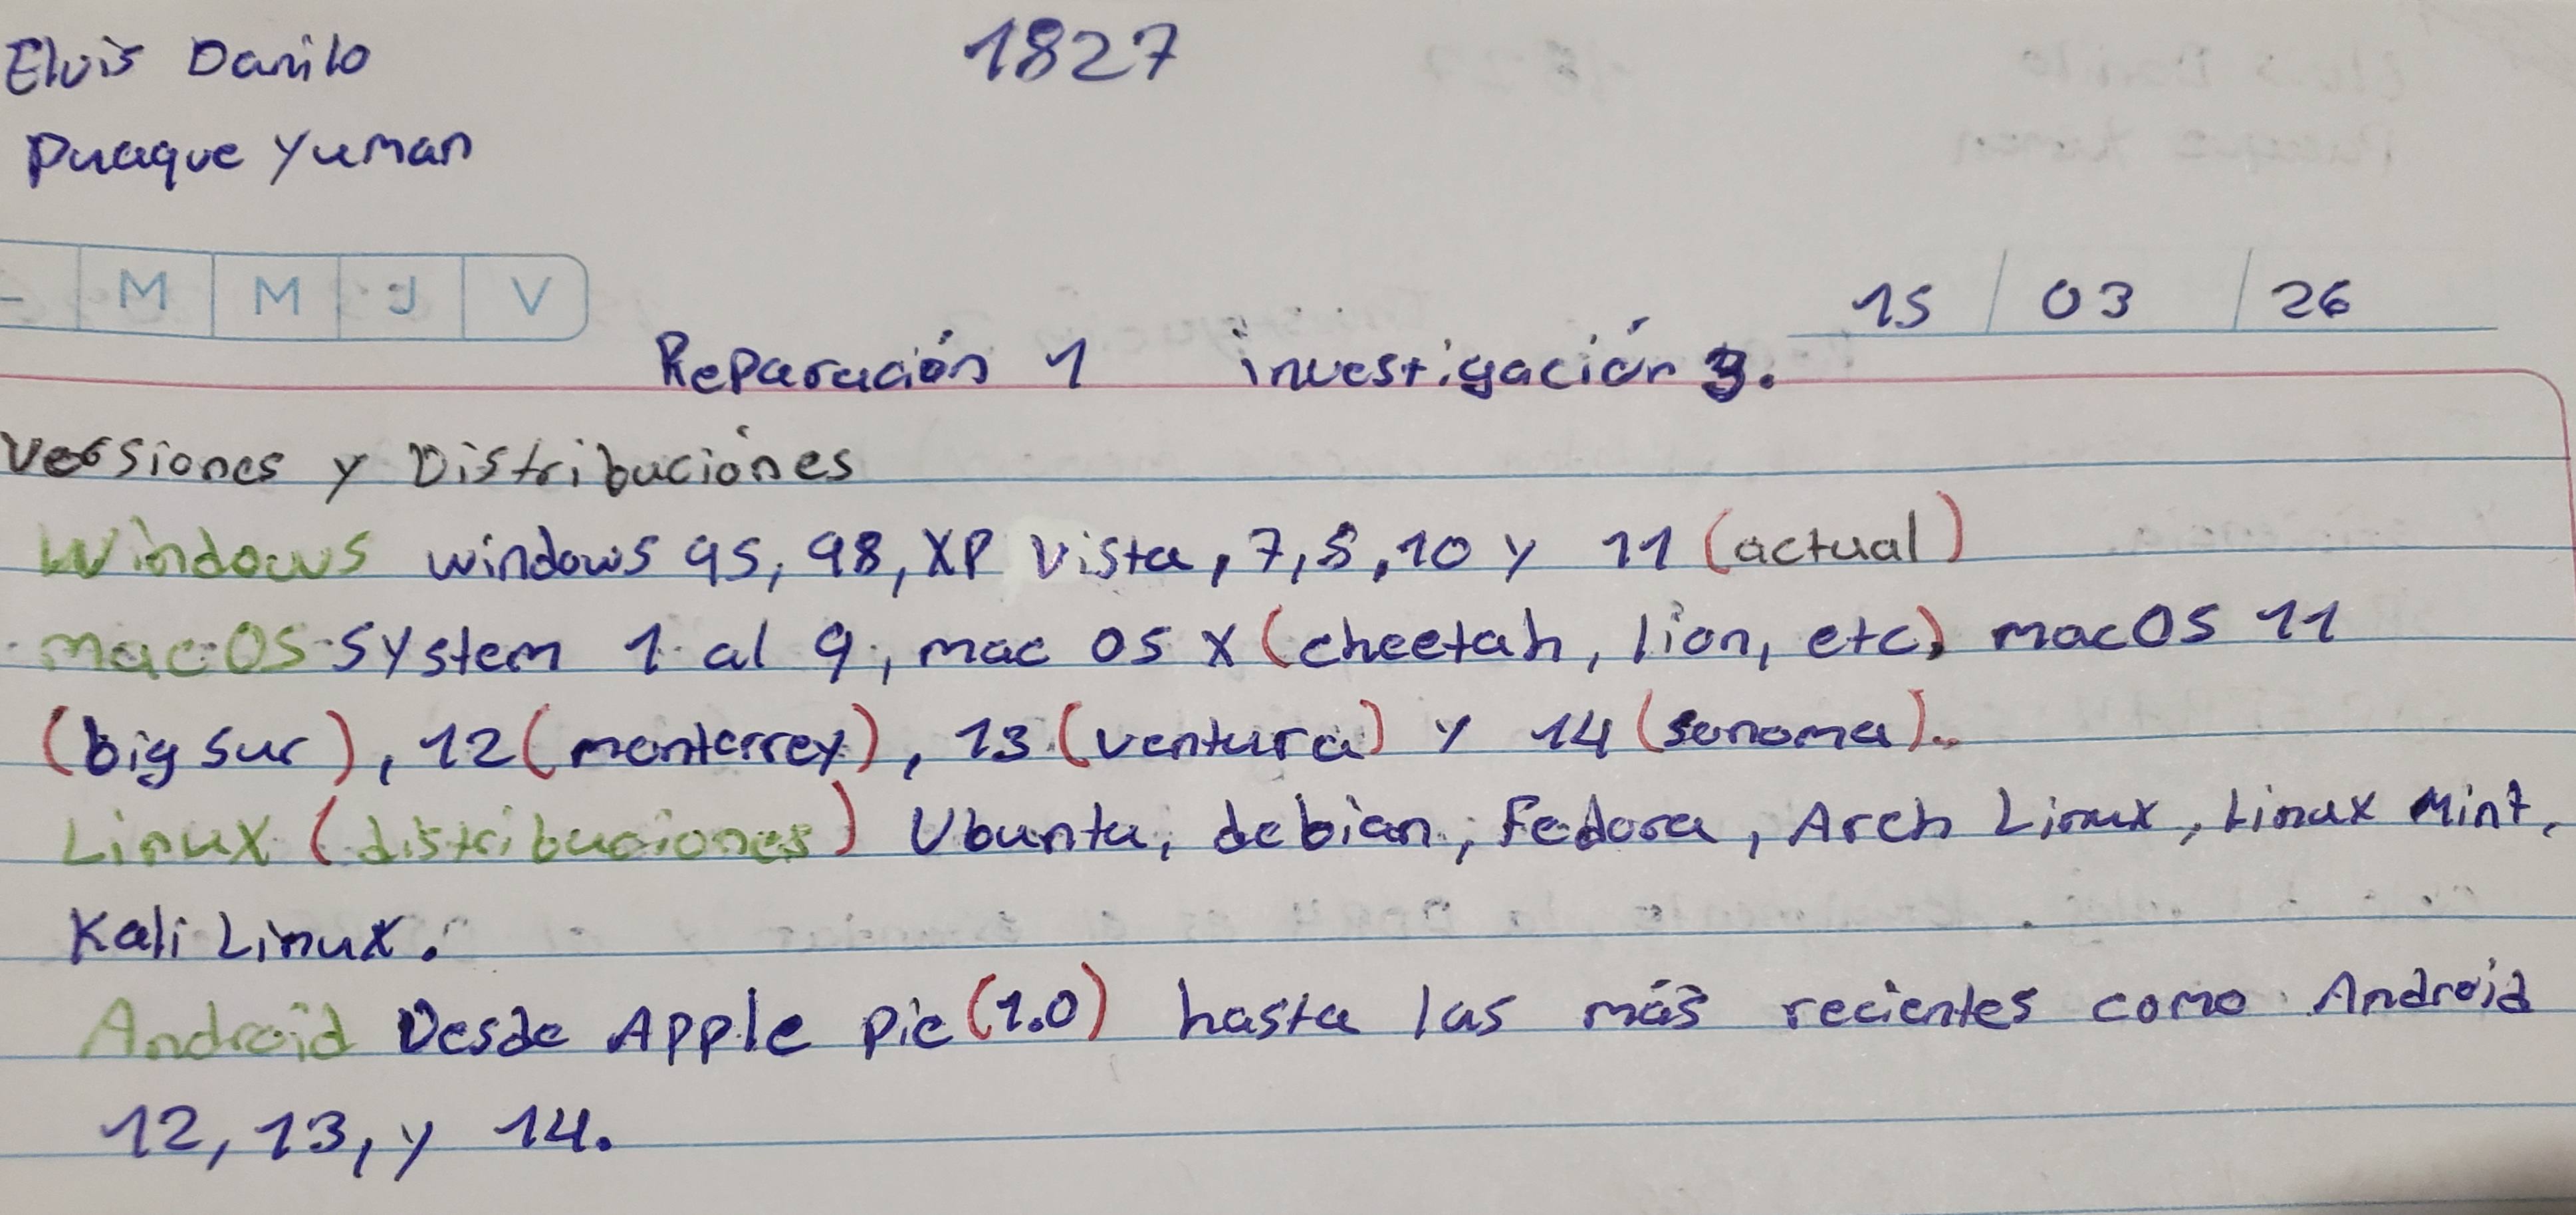 Elvis Danilo 1827
Puaque Yuman
M M J V
15 / 03 / 26
Reparación 1 investigación 3.
Versiones y Distribuciónes
Windows windows 95, 98, XP Vista, 7, 8, 10 y 11 (actual)
macOS System 1 al 9, mac OS X (cheetah, lion, etc) macOS 11
(big sur), 12 (monterrey), 13 (ventura) y 14 (sonoma).
Linux (distribuciones) Ubuntu, debian, Fedora, Arch Linux, Linux Mint,
Kali Linux.
Android Desde Apple pie (1.0) hasta las más recientes como Android
12, 13, y 14.